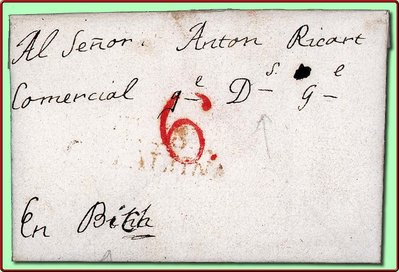 Al Señor. Anton Ricart
Comercial q^e D^s. G^e
6.
En Bitth